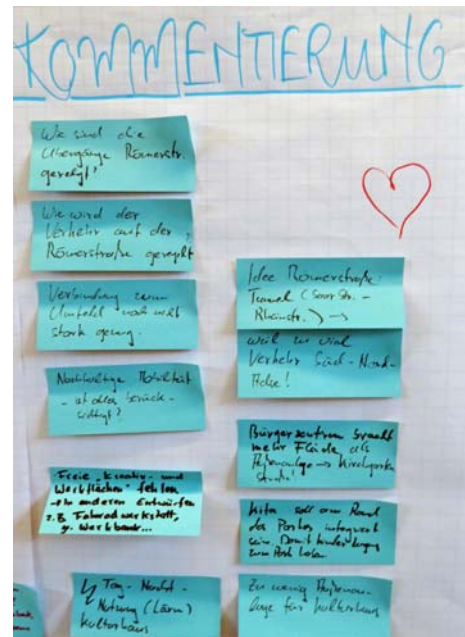 KOMMENTIERUNG
Wie sind die
Übergänge Römerstr.
geregelt?
Wie wird der
Verkehr auf der
Römerstraße geregelt?
Verbindung zum
Umfeld noch nicht
stark genug.
Nachhaltige Mobilität
- ist alles berück-
sichtigt?
Freie "Kreativ- und
Werkflächen" fehlen
in anderen Entwürfen
z.B. Fahrradwerkstatt,
Werkbank...
Tag-Nacht-
Nutzung (Lärm)
Kulturhaus
Idee Römerstraße:
Tunnel (Saarstr. -
Rheinstr.) →
weil zu viel
Verkehr Süd-Nord-
Achse!
Bürgerzentrum braucht
mehr Fläche als
→
Kita soll am Rand
des Parks integriert
sein. Damit Kinder
zum Park
Zu wenig
für Kulturhaus